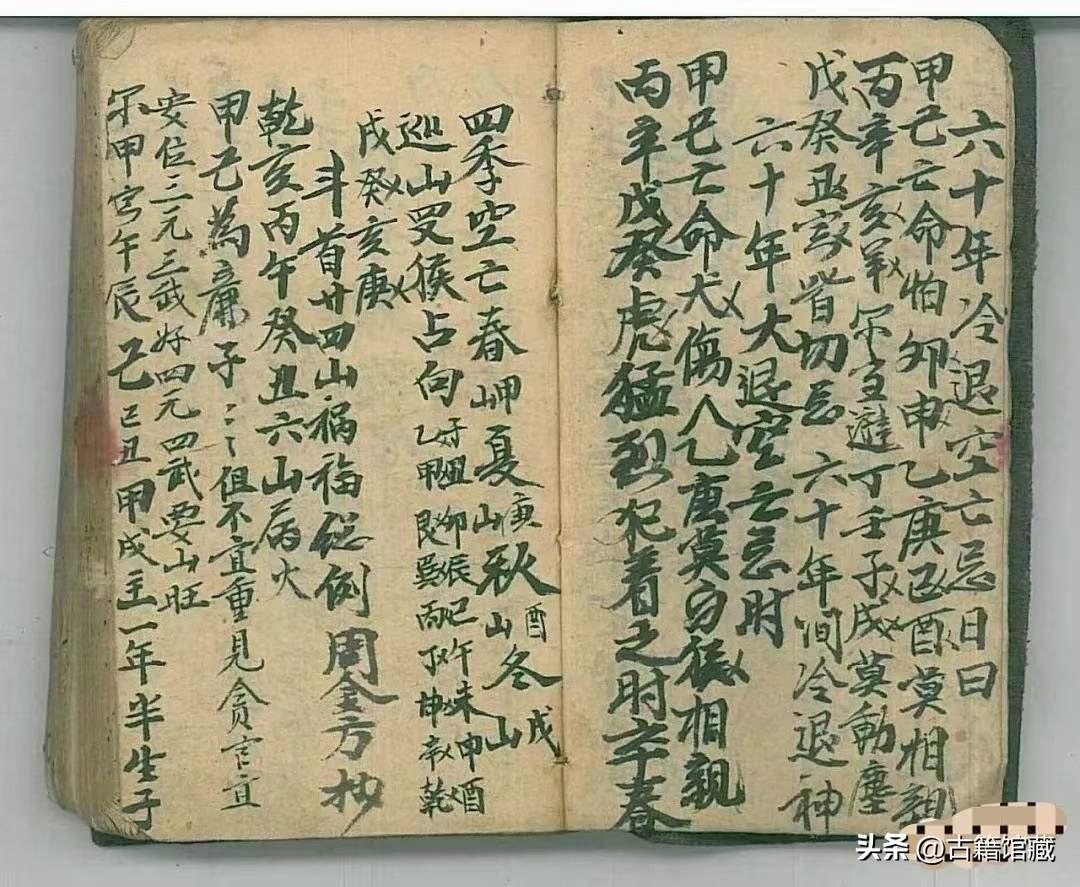 六十年冷退空亡忌日曰
甲己亡命怕夘申乙庚巳酉莫相親
丙辛亥羊不宜遊丁壬子戌莫動塵
戊癸丑寅皆切忌六十年間冷退神
六十年大退空亡忌时
甲己亡命犬傷人乙庚莫與猴相親
丙辛戊癸虎猛烈犯着之时卒春
四季空亡春岬山夏庚山秋酉山冬戊山
巡山叉猴占向
子丑卯辰巳午未申酉
乙甲艮巽丙丁坤亥乾
戌癸亥庚
斗首廿四山禍福總例 周金方抄
乾亥丙午癸丑六山屬火
甲己為廉子〻但不宜重見貪官宜
安位三元三武好四元四武要山旺
不甲寅午辰己巳丑甲戌主一年半生子
头条 @古籍馆藏